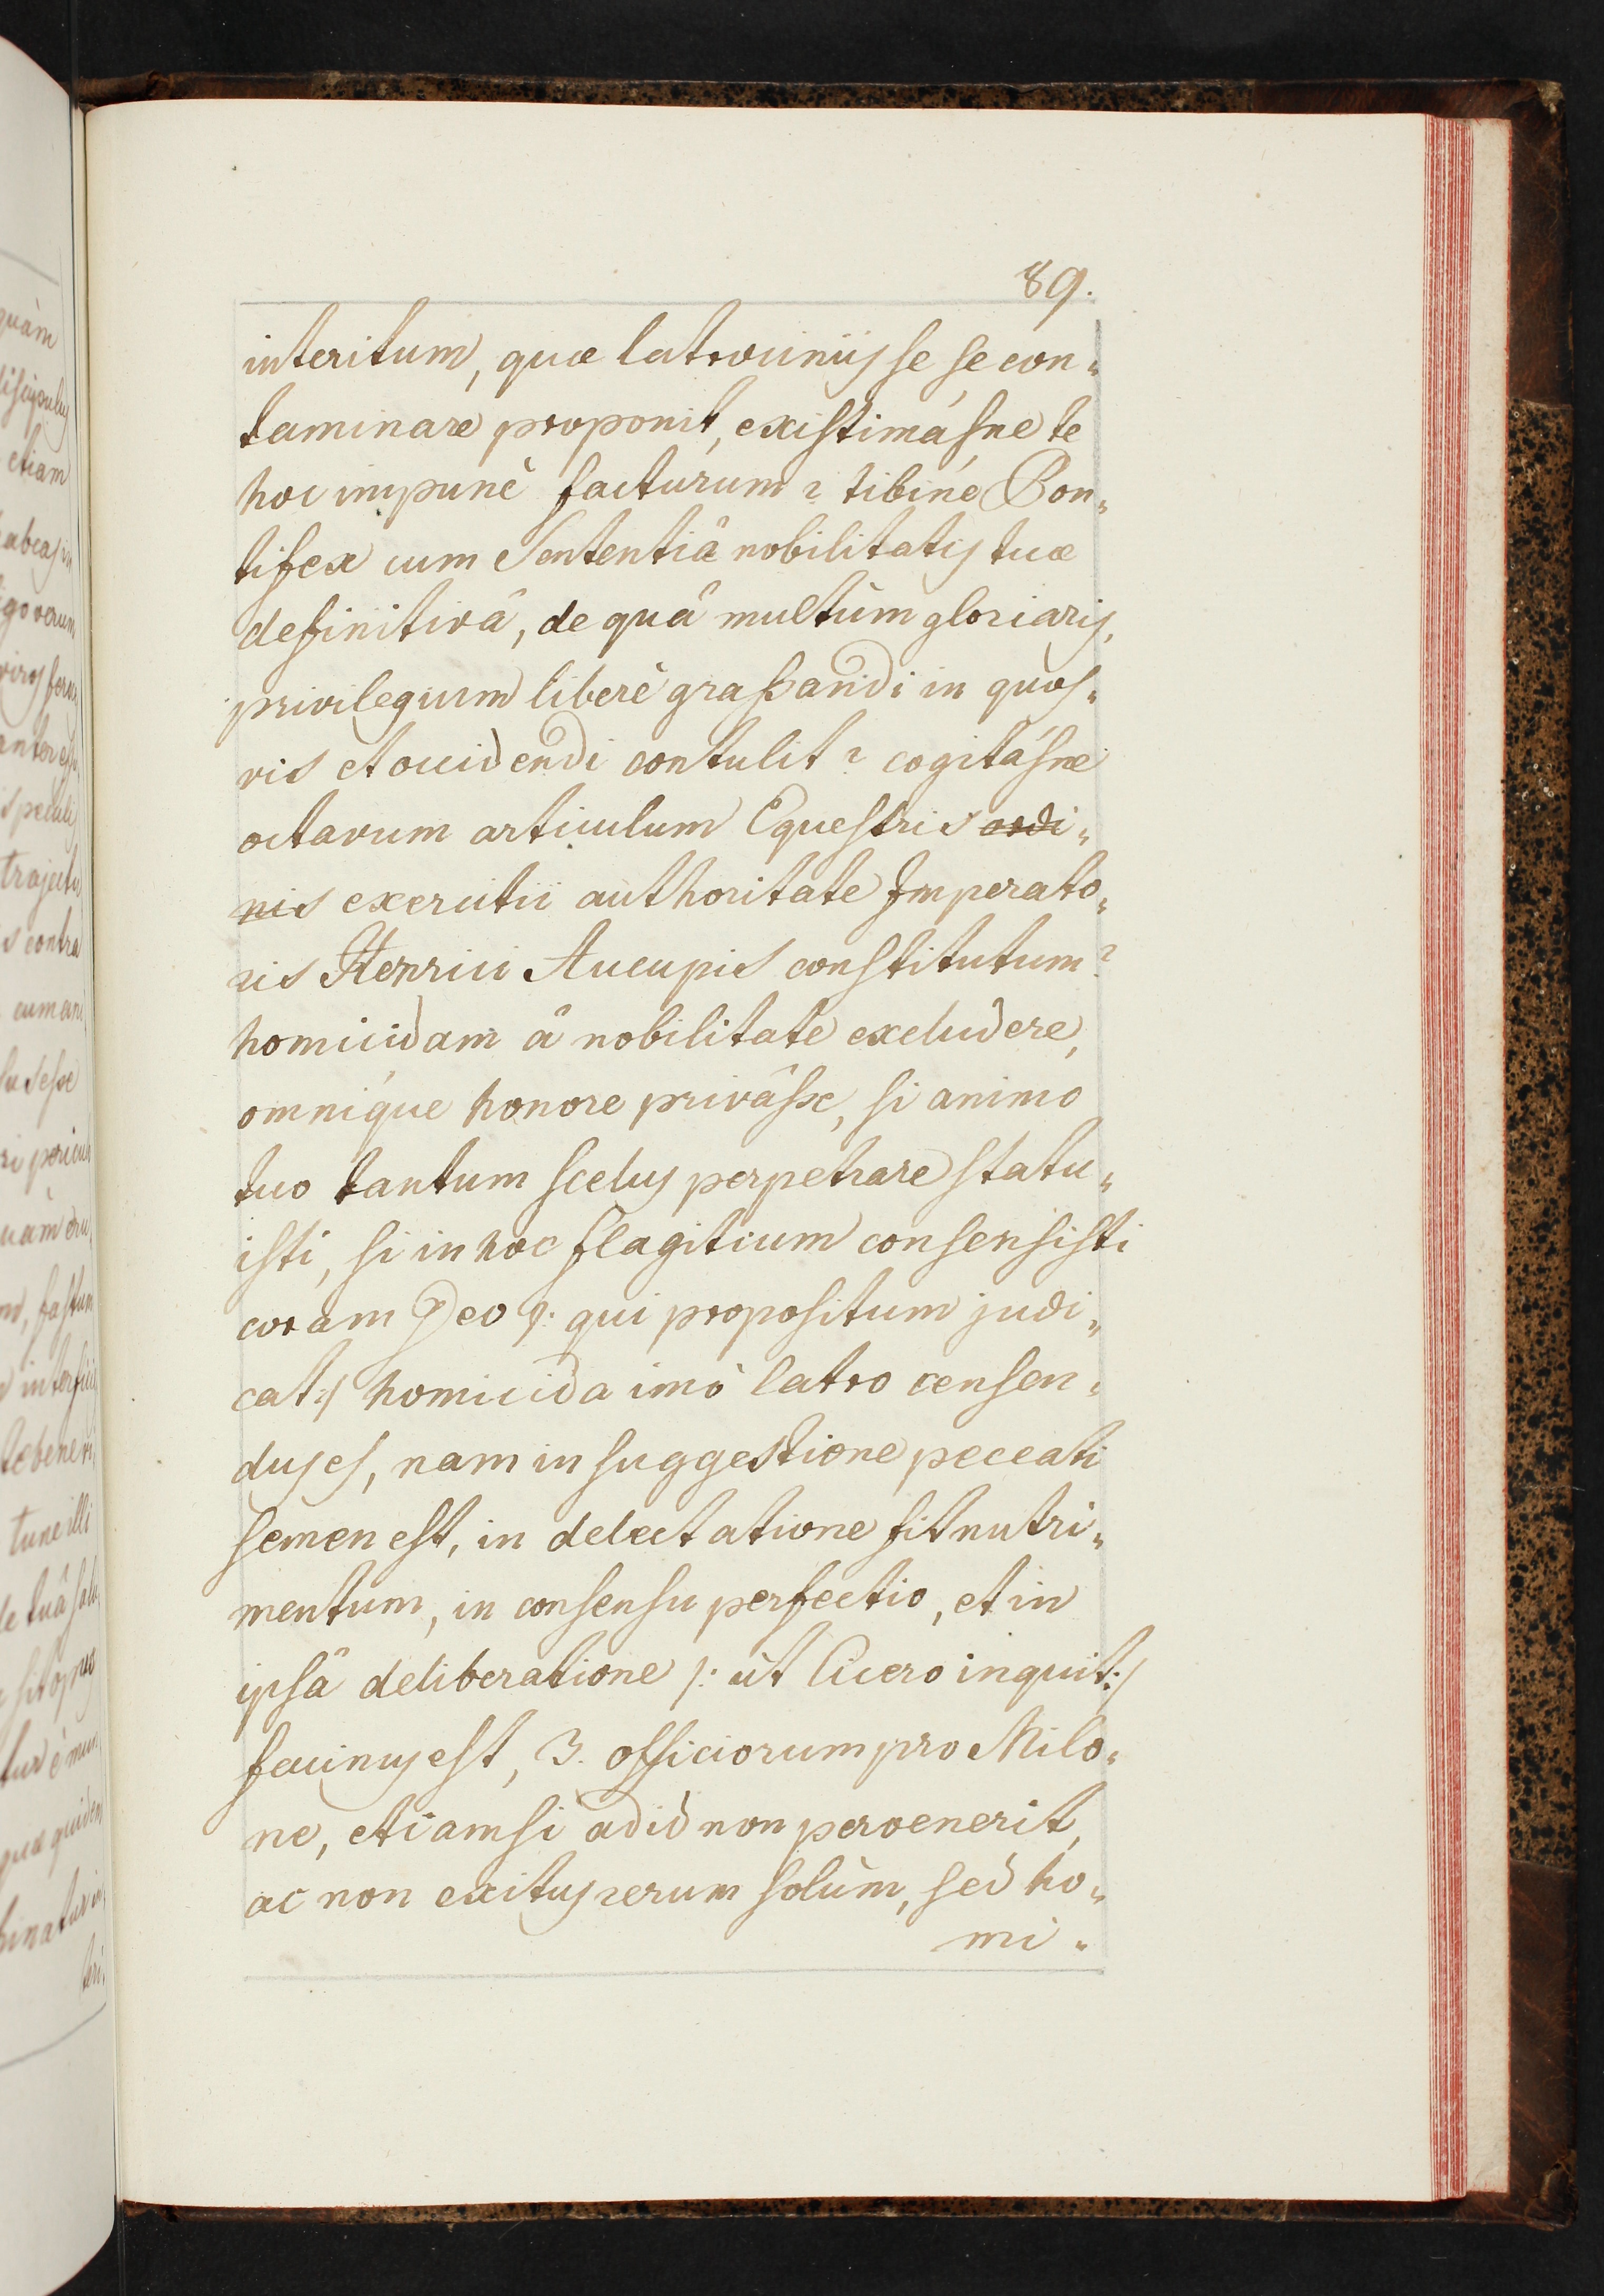 89.
interitum, quæ latrociniis se se con„
taminare proponit, existimásne te
hoc impunè facturum? tibiné Pon„
tifex cum Sententiâ nobilitatis tuæ
definitivâ, de quâ multùm gloriaris,
privilegium liberè graßandi in quos„
vis et occidendi contulit? cogitásne
octavum articulum Equestris ordi„
nis exercitii authoritate Imperato„
ris Henrici Aucupis constitutum?
homicidam â nobilitate excludere,
omnique honore privâsse, si animo
tuo tantum scelus perpetrare statu„
isti, si in hoc flagitium consensisti
coram Deo /: qui propositum judi„
cat :/ homicida imò latro censen„
dus es, nam in suggestione peccati
semen est, in delectatione fit nutri„
mentum, in consensu perfectio, et in
ipsâ deliberatione /: ut Cicero inquit :/
facinus est, 3. officiorum pro Milo„
ne, etiamsi ad id non pervenerit,
ac non exitus rerum solùm, sed ho„
mi„
quàm
discipulus
etiam
habeas in
ego verum
viros
trajectu
s contra
cum
tunc illi
teri.